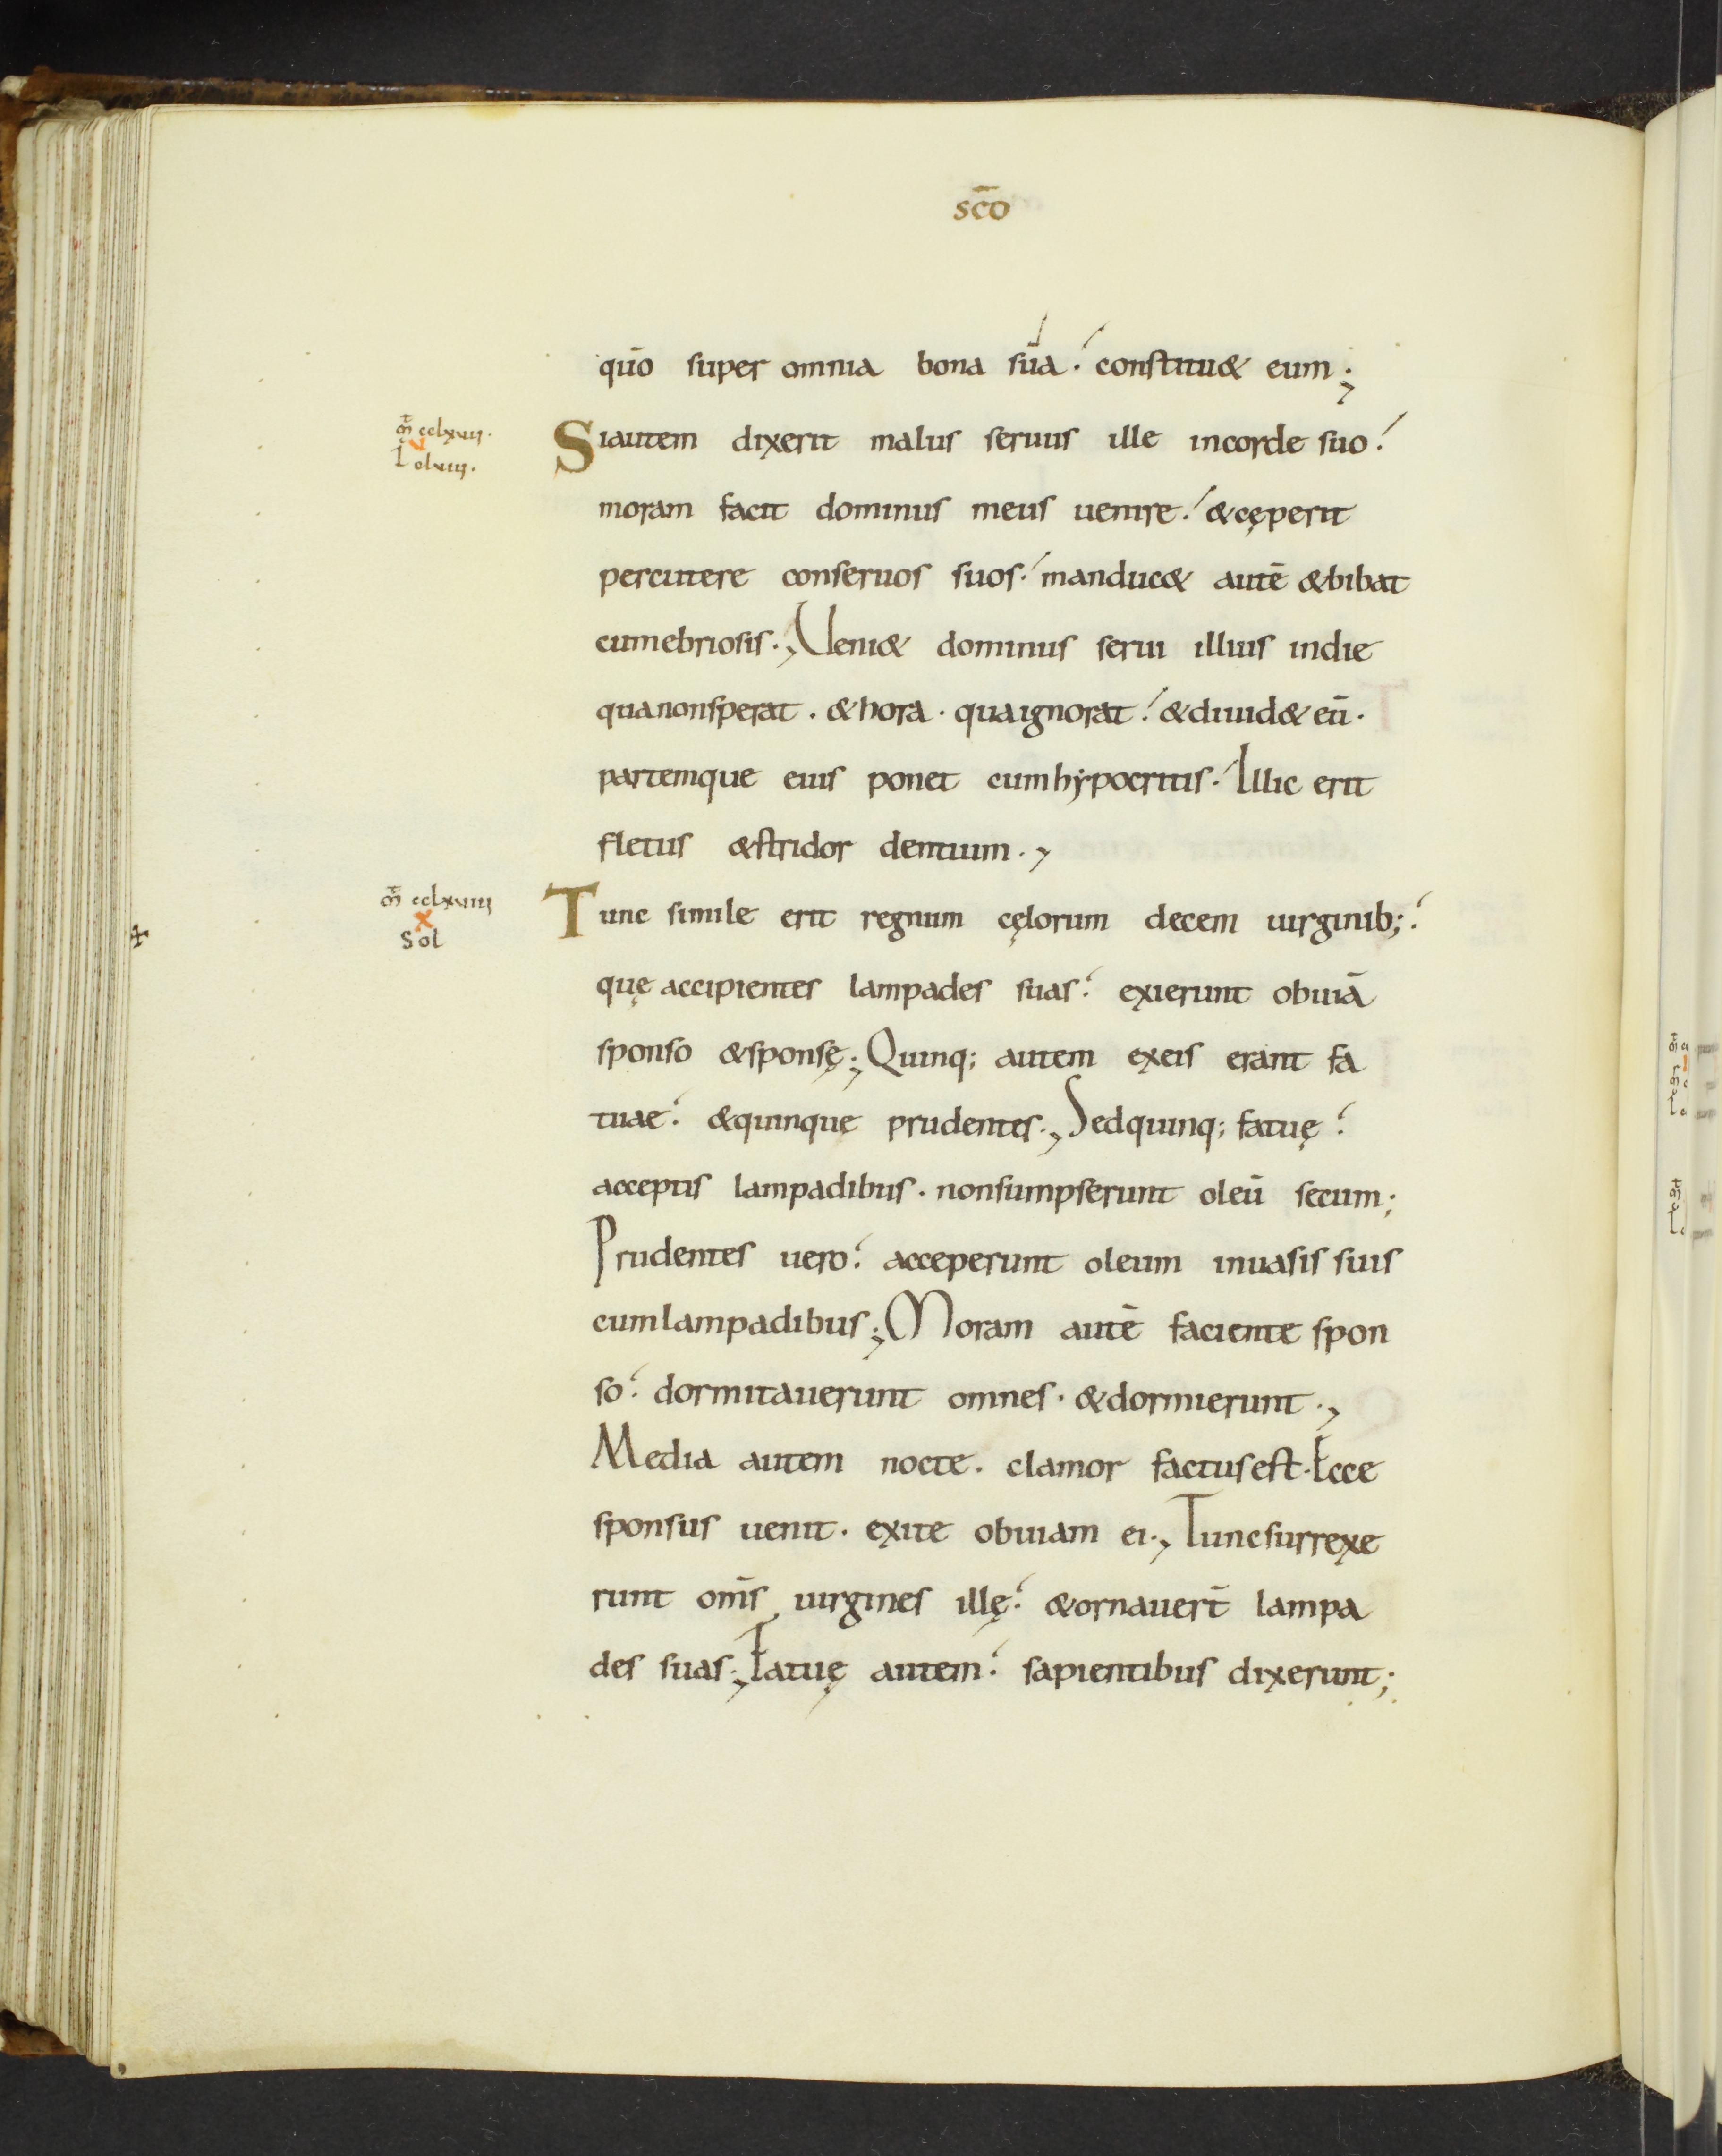 sc̄o
qūo super omnia bona sūa. constitu& eum;
m̄ cclxvii.
v
L clviii.
Siautem dixerit malus seruus ille incorde suo.
moram facit dominus meus uenire. &cęperit
percutere conseruos suos. manduc& autē &bibat
cumebriosis., Ueni& dominus serui illius indie
quanonsperat. &hora. quaignorat. &diuid& eū.
partemque eius ponet cumhypocritis. Illic erit
fletus &stridor dentium.,
m̄ cclxviii
x
Sol
Tunc simile erit regnum cęlorum decem uirginib;.
quę accipientes lampades suas. exierunt obuiā
sponso &sponsę; Quinq; autem exeis erant fa
tuae. &quinquę prudentes., Sedquinq; fatuę.
acceptis lampadibus. nonsumpserunt oleū secum;
Prudentes uero. acceperunt oleum inuasis suis
cumlampadibus; Moram autē faciente spon
so. dormitauerunt omnes. &dormierunt.,
Media autem nocte. clamor factusest. Ecce
sponsus uenit. exite obuiam ei., Tuncsurrexe
runt om̄s uirgines illę. &ornauer̄t lampa
des suas., Fatuę autem. sapientibus dixerunt;